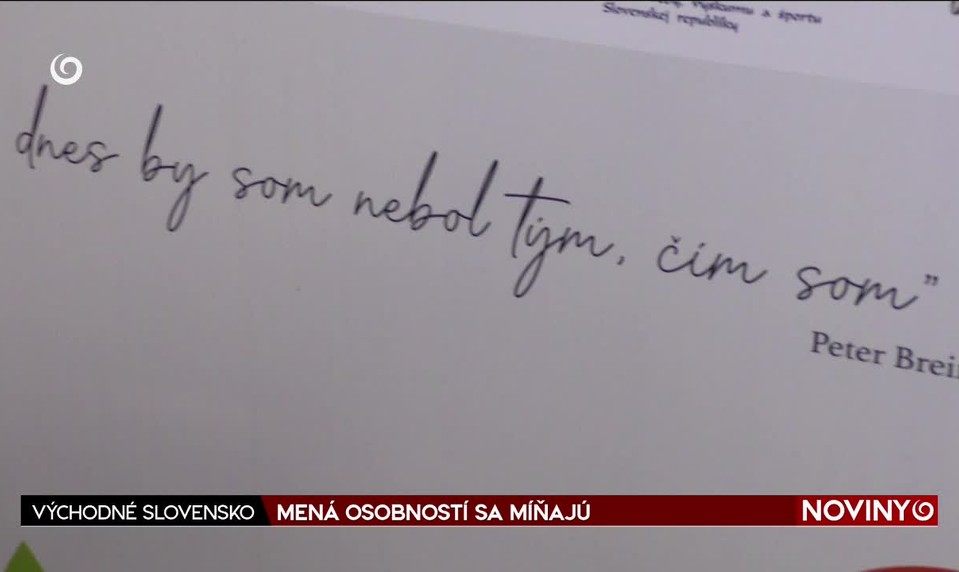 výskumu a športu
Slovenskej republiky
dnes by som nebol tým, čím som”
Peter Brei
VÝCHODNÉ SLOVENSKO MENÁ OSOBNOSTÍ SA MÍŇAJÚ NOVINY